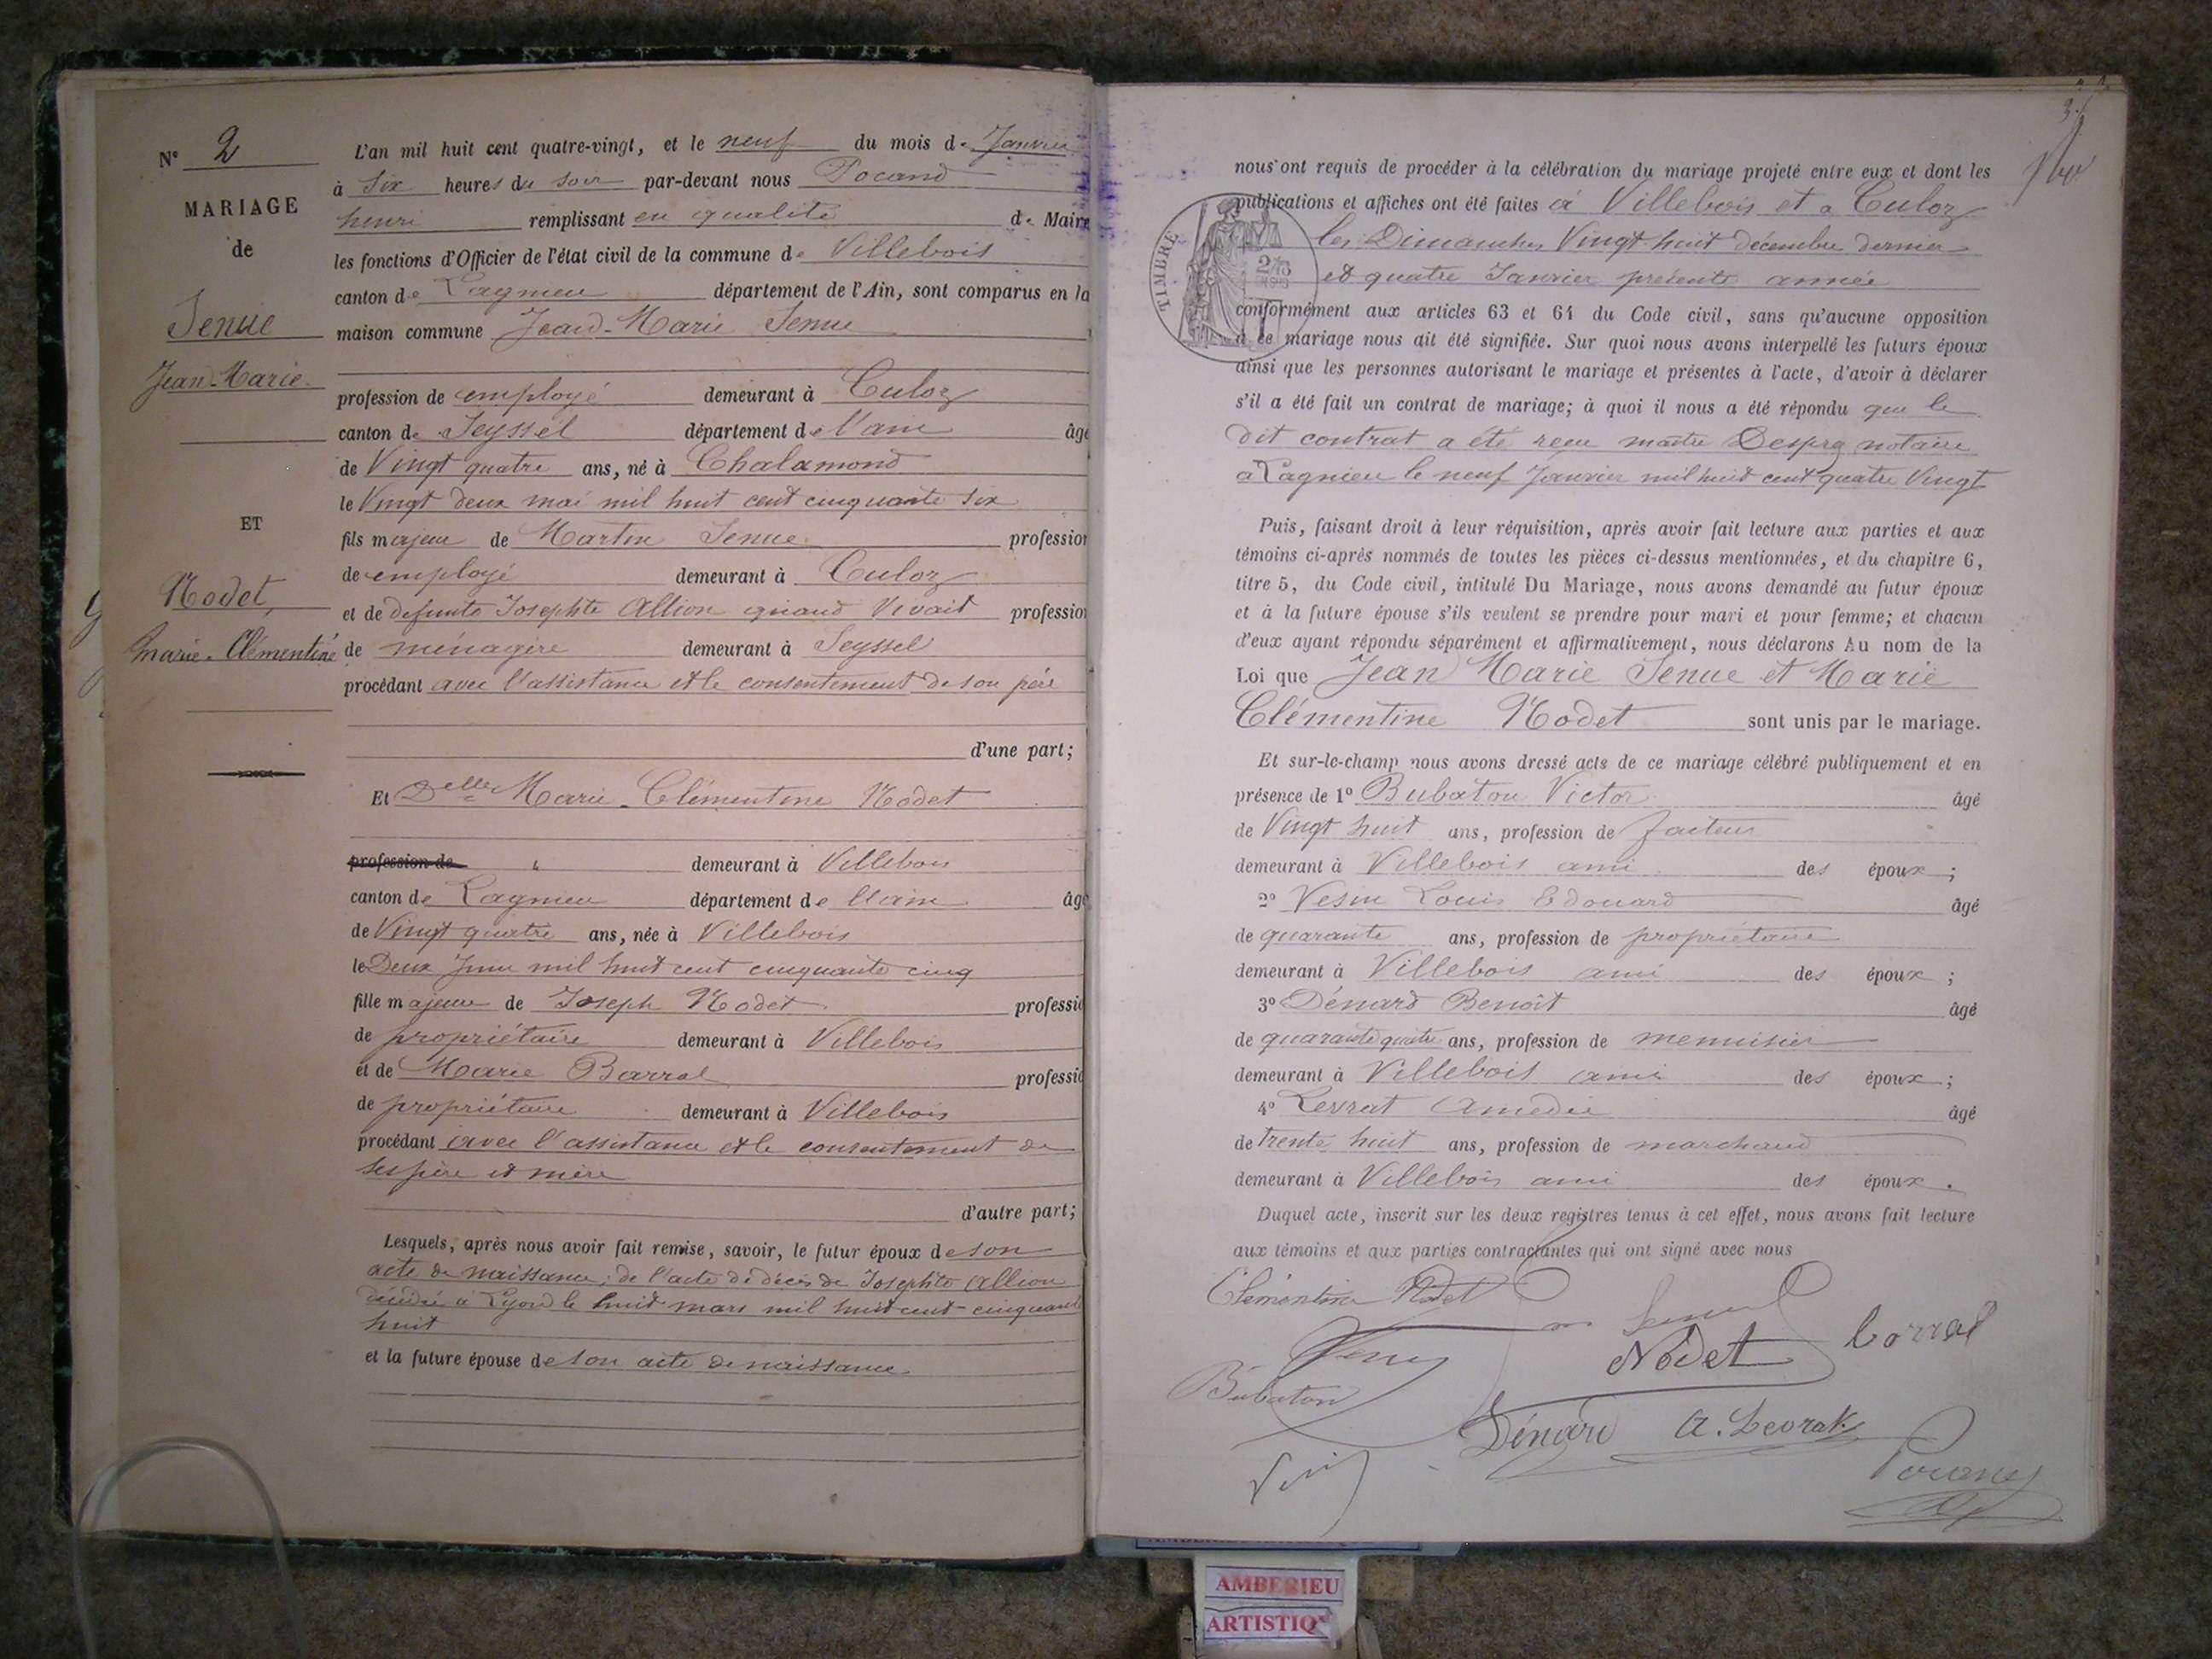 N° 2
MARIAGE
de
Senue
Jean-Marie
ET
Nodet,
Marie-Clémentine
L'an mil huit cent quatre-vingt, et le neuf du mois de Janvier
à Six heures du soir par-devant nous Pocand
henri remplissant en qualité de Maire
les fonctions d'Officier de l'état civil de la commune de Villebois
canton de Lagnieu département de l'Ain, sont comparus en la
maison commune Jean-Marie Senue
profession de employé demeurant à Culoz
canton de Seyssel département de l'ain âgé
de Vingt quatre ans, né à Chalamond
le Vingt deux mai mil huit cent cinquante six
fils majeur de Martin Senue profession
de employé demeurant à Culoz
et de defunte Josephte Allion quand Vivait profession
de ménagère demeurant à Seyssel
procédant avec l'assistance et le consentement de son père
d'une part;
Et Delle Marie-Clémentine Nodet
profession de " demeurant à Villebois
canton de Lagnieu département de l'ain âgé
de Vingt quatre ans, née à Villebois
le Deux Juin mil huit cent cinquante cinq
fille majeure de Joseph Nodet professio
de propriétaire demeurant à Villebois
et de Marie Barral professio
de propriétaire demeurant à Villebois
procédant avec l'assistance et le consentement de
ses père et mère
d'autre part;
Lesquels, après nous avoir fait remise, savoir, le futur époux de son
acte de naissance; de l'acte de décès de Josephte Allion
décédée à Lyon le huit mars mil huit cent cinquante
huit
et la future épouse de son acte de naissance
nous ont requis de procéder à la célébration du mariage projeté entre eux et dont les
publications et affiches ont été faites à Villebois et à Culoz
les Dimanches Vingt huit décembre dernier
et quatre Janvier présente année
TIMBRE
conformément aux articles 63 et 64 du Code civil, sans qu'aucune opposition
à ce mariage nous ait été signifiée. Sur quoi nous avons interpellé les futurs époux
ainsi que les personnes autorisant le mariage et présentes à l'acte, d'avoir à déclarer
s'il a été fait un contrat de mariage; à quoi il nous a été répondu que le
dit contrat a été reçu maître notaire
a Lagnieu le neuf Janvier mil huit cent quatre Vingt
Puis, faisant droit à leur réquisition, après avoir fait lecture aux parties et aux
témoins ci-après nommés de toutes les pièces ci-dessus mentionnées, et du chapitre 6,
titre 5, du Code civil, intitulé Du Mariage, nous avons demandé au futur époux
et à la future épouse s'ils veulent se prendre pour mari et pour femme; et chacun
d'eux ayant répondu séparément et affirmativement, nous déclarons Au nom de la
Loi que Jean Marie Senue et Marie
Clémentine Nodet sont unis par le mariage.
Et sur-le-champ nous avons dressé acte de ce mariage célébré publiquement et en
présence de 1° Bubaton Victor âgé
de Vingt huit ans, profession de facteur
demeurant à Villebois ami des époux ;
2° Vesin Louis Edouard âgé
de quarante ans, profession de propriétaire
demeurant à Villebois ami des époux ;
3° Dénard Benoît âgé
de quarante quatre ans, profession de menuisier
demeurant à Villebois ami des époux ;
4° Levrat Amedée âgé
de trente huit ans, profession de marchand
demeurant à Villebois ami des époux.
Duquel acte, inscrit sur les deux registres tenus à cet effet, nous avons fait lecture
aux témoins et aux parties contractantes qui ont signé avec nous
Clémentine Nodet
Nodet
barral
Bubaton
Dénard
A. Levrat
AMBERIEU
ARTISTIQ